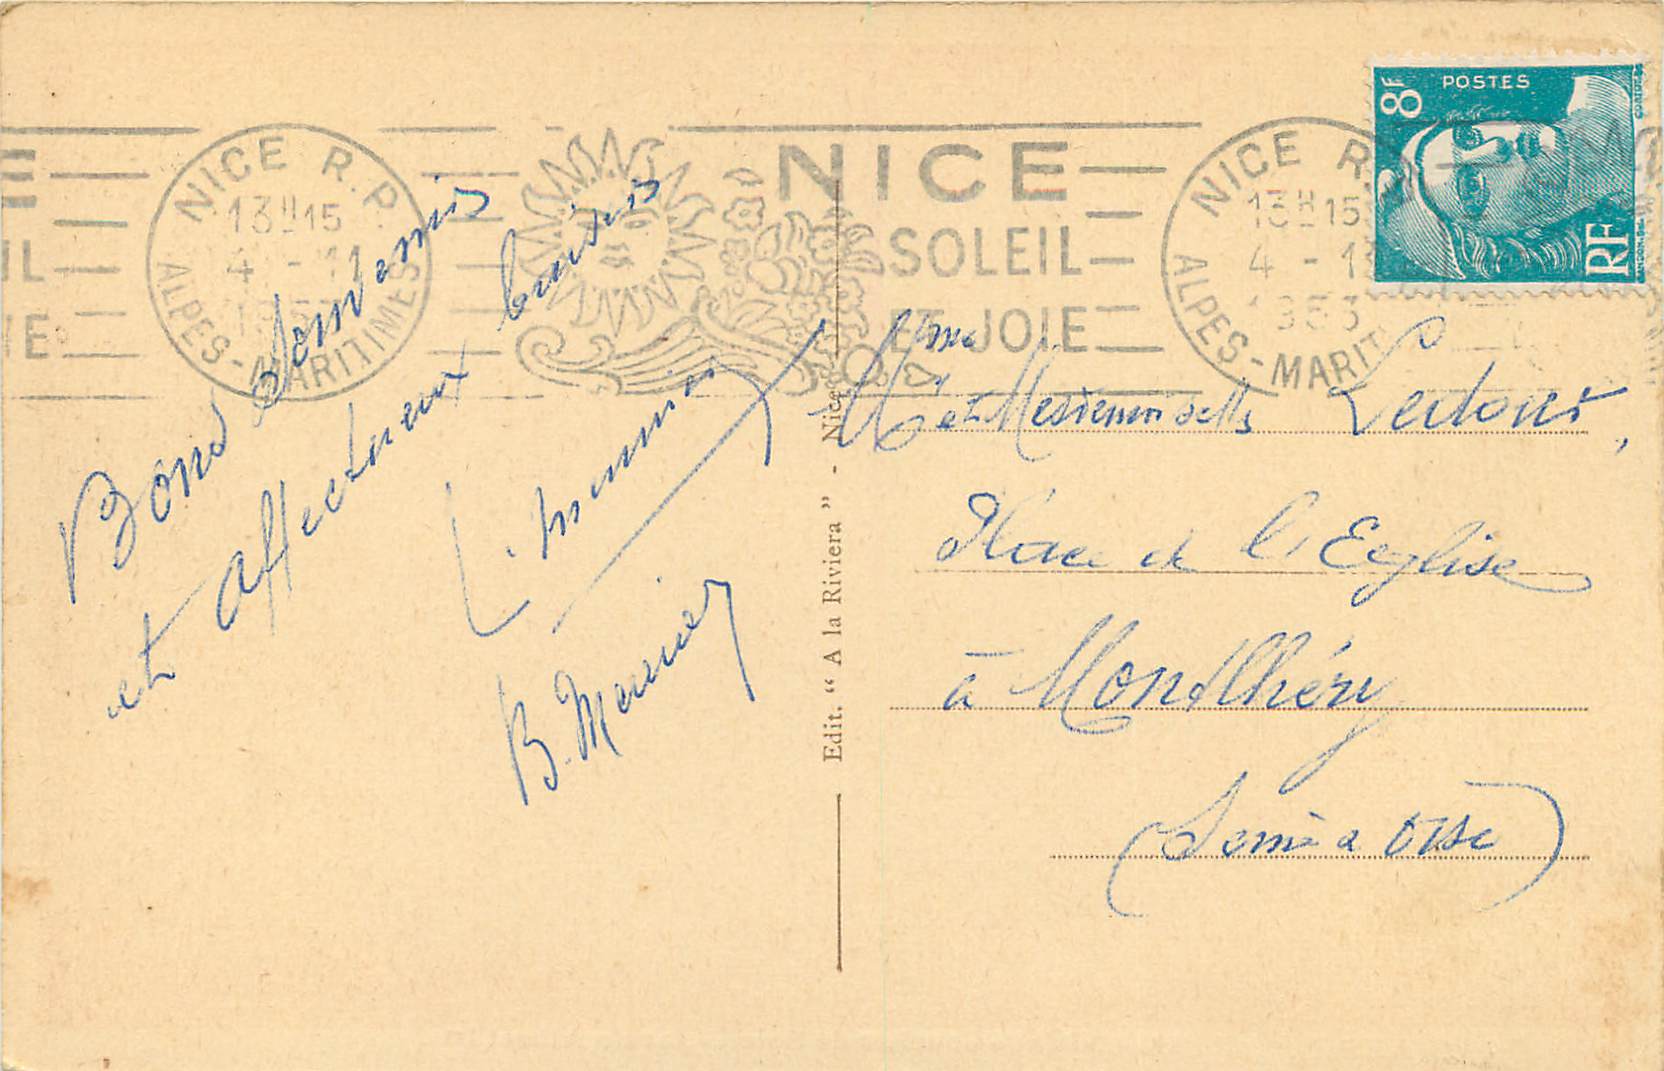 NICE R.P.
13H15
4 - 11
ALPES-MARITIMES
NICE
SOLEIL
ET JOIE
NICE R.
13H15
4 - 1
1953
ALPES-MARIT
8F
POSTES
RF
Bons souvenirs
et affectueux baisers
L. Meunier
B. Meunier
Edit. “ A la Riviera ” - Nice
Mme
et Mesdemoiselles Ledoux,
Place de l'Eglise
à Montlhéry
(Seine & Oise)